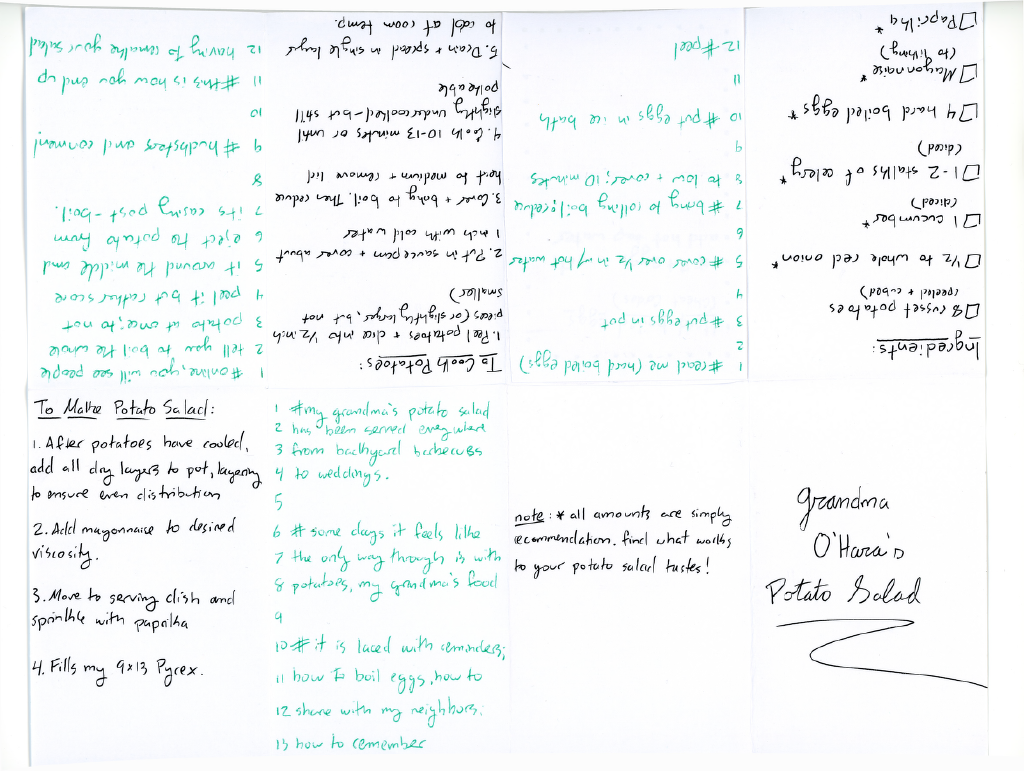 Grandma
O'Hara's
Potato Salad
Ingredients:
☐ 8 russet potatoes
(peeled + cubed)
☐ 1/2 to whole red onion *
☐ 1 cucumber *
(diced)
☐ 1-2 stalks of celery *
(diced)
☐ 4 hard boiled eggs *
☐ Mayonnaise *
(to liking)
☐ Paprika *
1 # read me (hard boiled eggs)
2
3 # put eggs in pot
4
5 # cover over 1/2 in w/ hot water
6
7 # bring to rolling boil; reduce
8 to low + cover; 10 minutes
9
10 # put eggs in ice bath
11
12 # peel
To Cook Potatoes:
1. Peel potatoes + dice into 1/2 inch
pieces (or slightly larger, but not
smaller)
2. Put in saucepan + cover about
1 inch with cold water
3. Cover + bring to boil. Then reduce
heat to medium + remove lid
4. Cook 10-13 minutes or until
slightly undercooked - but still
pokeable
5. Drain + spread in single layer
to cool at room temp.
1 # online, you will see people
2 tell you to boil the whole
3 potato at once; to not
4 peel it but rather score
5 it around the middle and
6 eject the potato from
7 its casing post-boil.
8
9 # hucksters and conmen!
10
11 # this is how you end up
12 having to remake your salad
To Make Potato Salad:
1. After potatoes have cooled,
add all dry layers to pot, layering
to ensure even distribution
2. Add mayonnaise to desired
viscosity.
3. Move to serving dish and
sprinkle with paprika
4. Fills my 9x13 Pyrex.
1 # my grandma's potato salad
2 has been served everywhere
3 from backyard barbecues
4 to weddings.
5
6 # some days it feels like
7 the only way through is with
8 potatoes, my grandma's food
9
10 # it is laced with reminders;
11 how to boil eggs, how to
12 share with my neighbors.
13 how to remember
note: * all amounts are simply
recommendation. find what works
to your potato salad tastes!